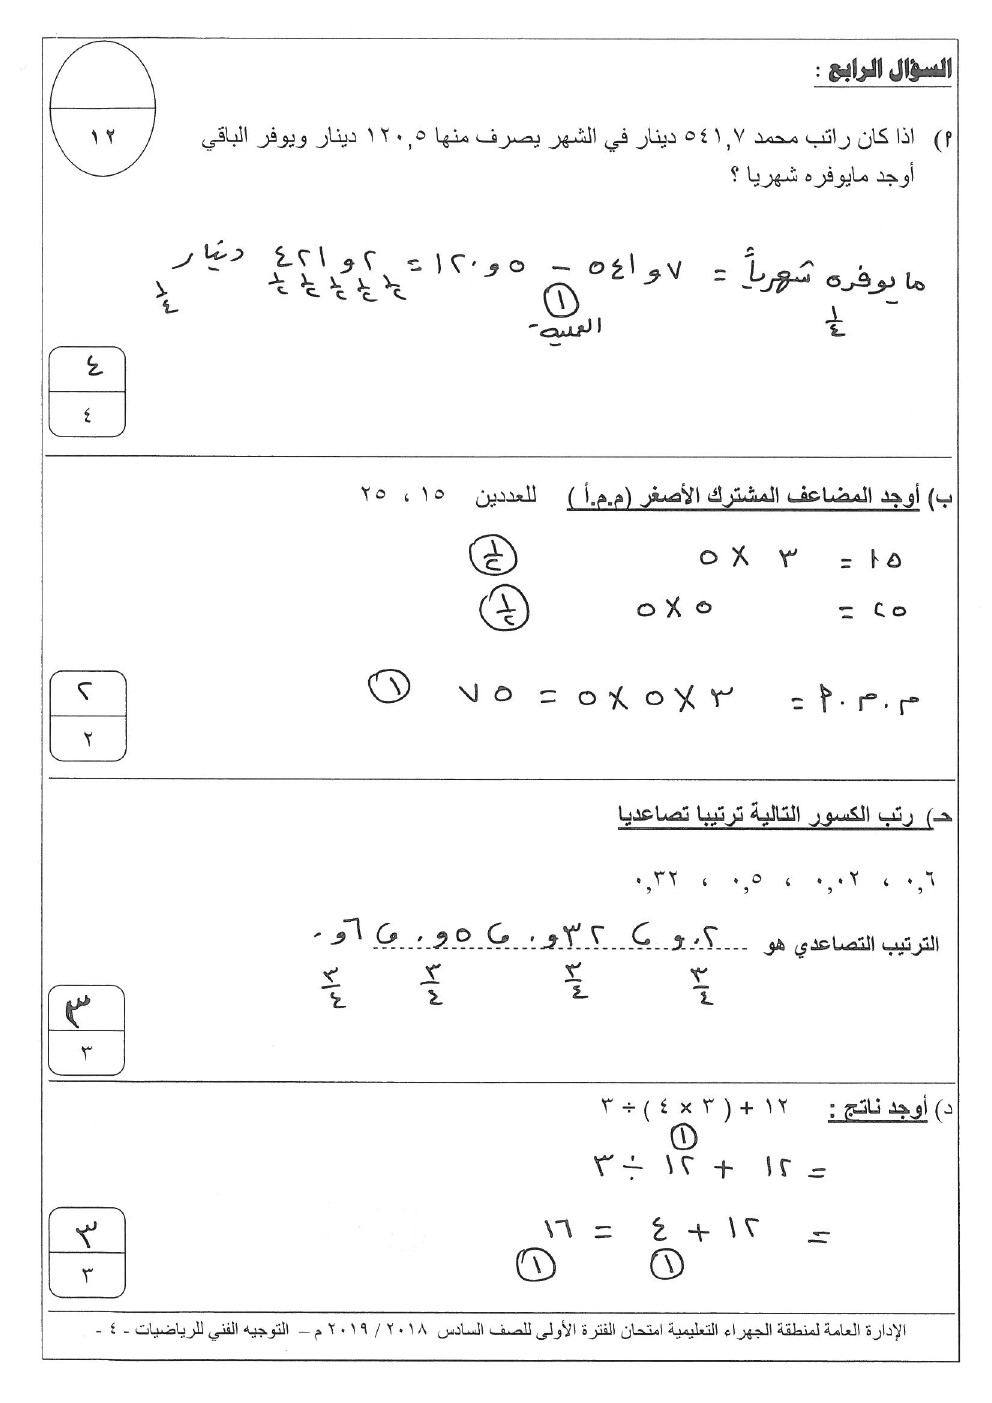 السؤال الرابع :
١٢
٩) اذا كان راتب محمد ٥٤١,٧ دينار في الشهر يصرف منها ١٢٠,٥ دينار ويوفر الباقي
أوجد مايوفره شهريا ؟
ما يوفره شهرياً = ٧ و ٥٤١ – ٥ و ١٢٠ = ٢ و ٤٢١ دينار
١/٤ ١ ١/٢ ١/٢ ١/٢ ١/٢ ١/٢ ١/٤
العملية
٤
٤
ب) أوجد المضاعف المشترك الأصغر (م.م.أ ) للعددين ١٥ ، ٢٥
١٥ = ٣ × ٥ ١/٢
٢٥ = ٥ × ٥ ١/٢
م . م . ٩ = ٣ × ٥ × ٥ = ٧٥ ١
٢
٢
حـ) رتب الكسور التالية ترتيبا تصاعديا
٠,٦ ، ٠,٠٢ ، ٠,٥ ، ٠,٣٢
الترتيب التصاعدي هو ٠٢و٠ ، ٣٢و٠ ، ٥و٠ ، ٦و٠
٣/٤ ٣/٤ ٣/٤ ٣/٤
٣
٣
د) أوجد ناتج : ١٢ + ( ٣ × ٤ ) ÷ ٣
١
= ١٢ + ١٢ ÷ ٣
= ١٢ + ٤ = ١٦
١ ١
٣
٣
الإدارة العامة لمنطقة الجهراء التعليمية امتحان الفترة الأولى للصف السادس ٢٠١٨ / ٢٠١٩ م – التوجيه الفني للرياضيات - ٤ -